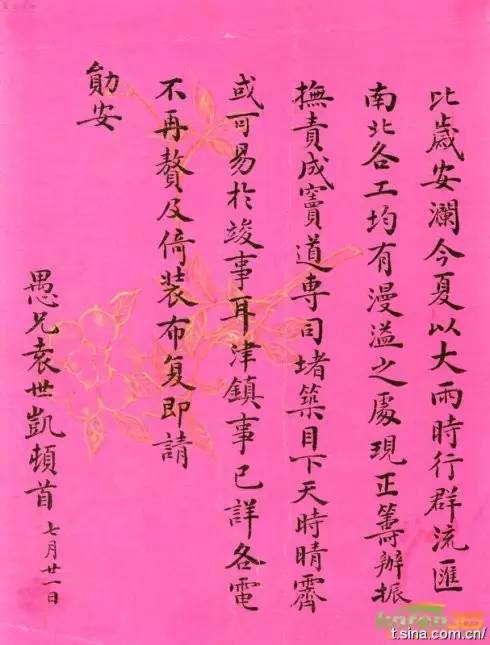 比歲安瀾今夏以大雨時行群流匯
南北各工均有漫溢之處現正籌辦振
撫責成竇道專司堵築目下天時晴霽
或可易於竣事耳津鎮事已詳各電
不再贅及倚裝布复即請
勛安
愚兄袁世凱頓首 七月廿一日
t.sina.com.cn/